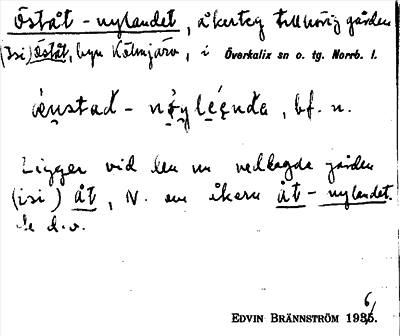 Öståt - nylandet, åkerteg tillhörig gården
(isi) Öståt, byn Kölmjärv, i Överkalix sn o. tg. Norrb. l.
nø̨yleénda, bf. n.
Ligger vid den nu nedlagda gården
(isi) åt, N. om åkern åt - nylandet.
Se d. o.
EDVIN BRÄNNSTRÖM 1936.